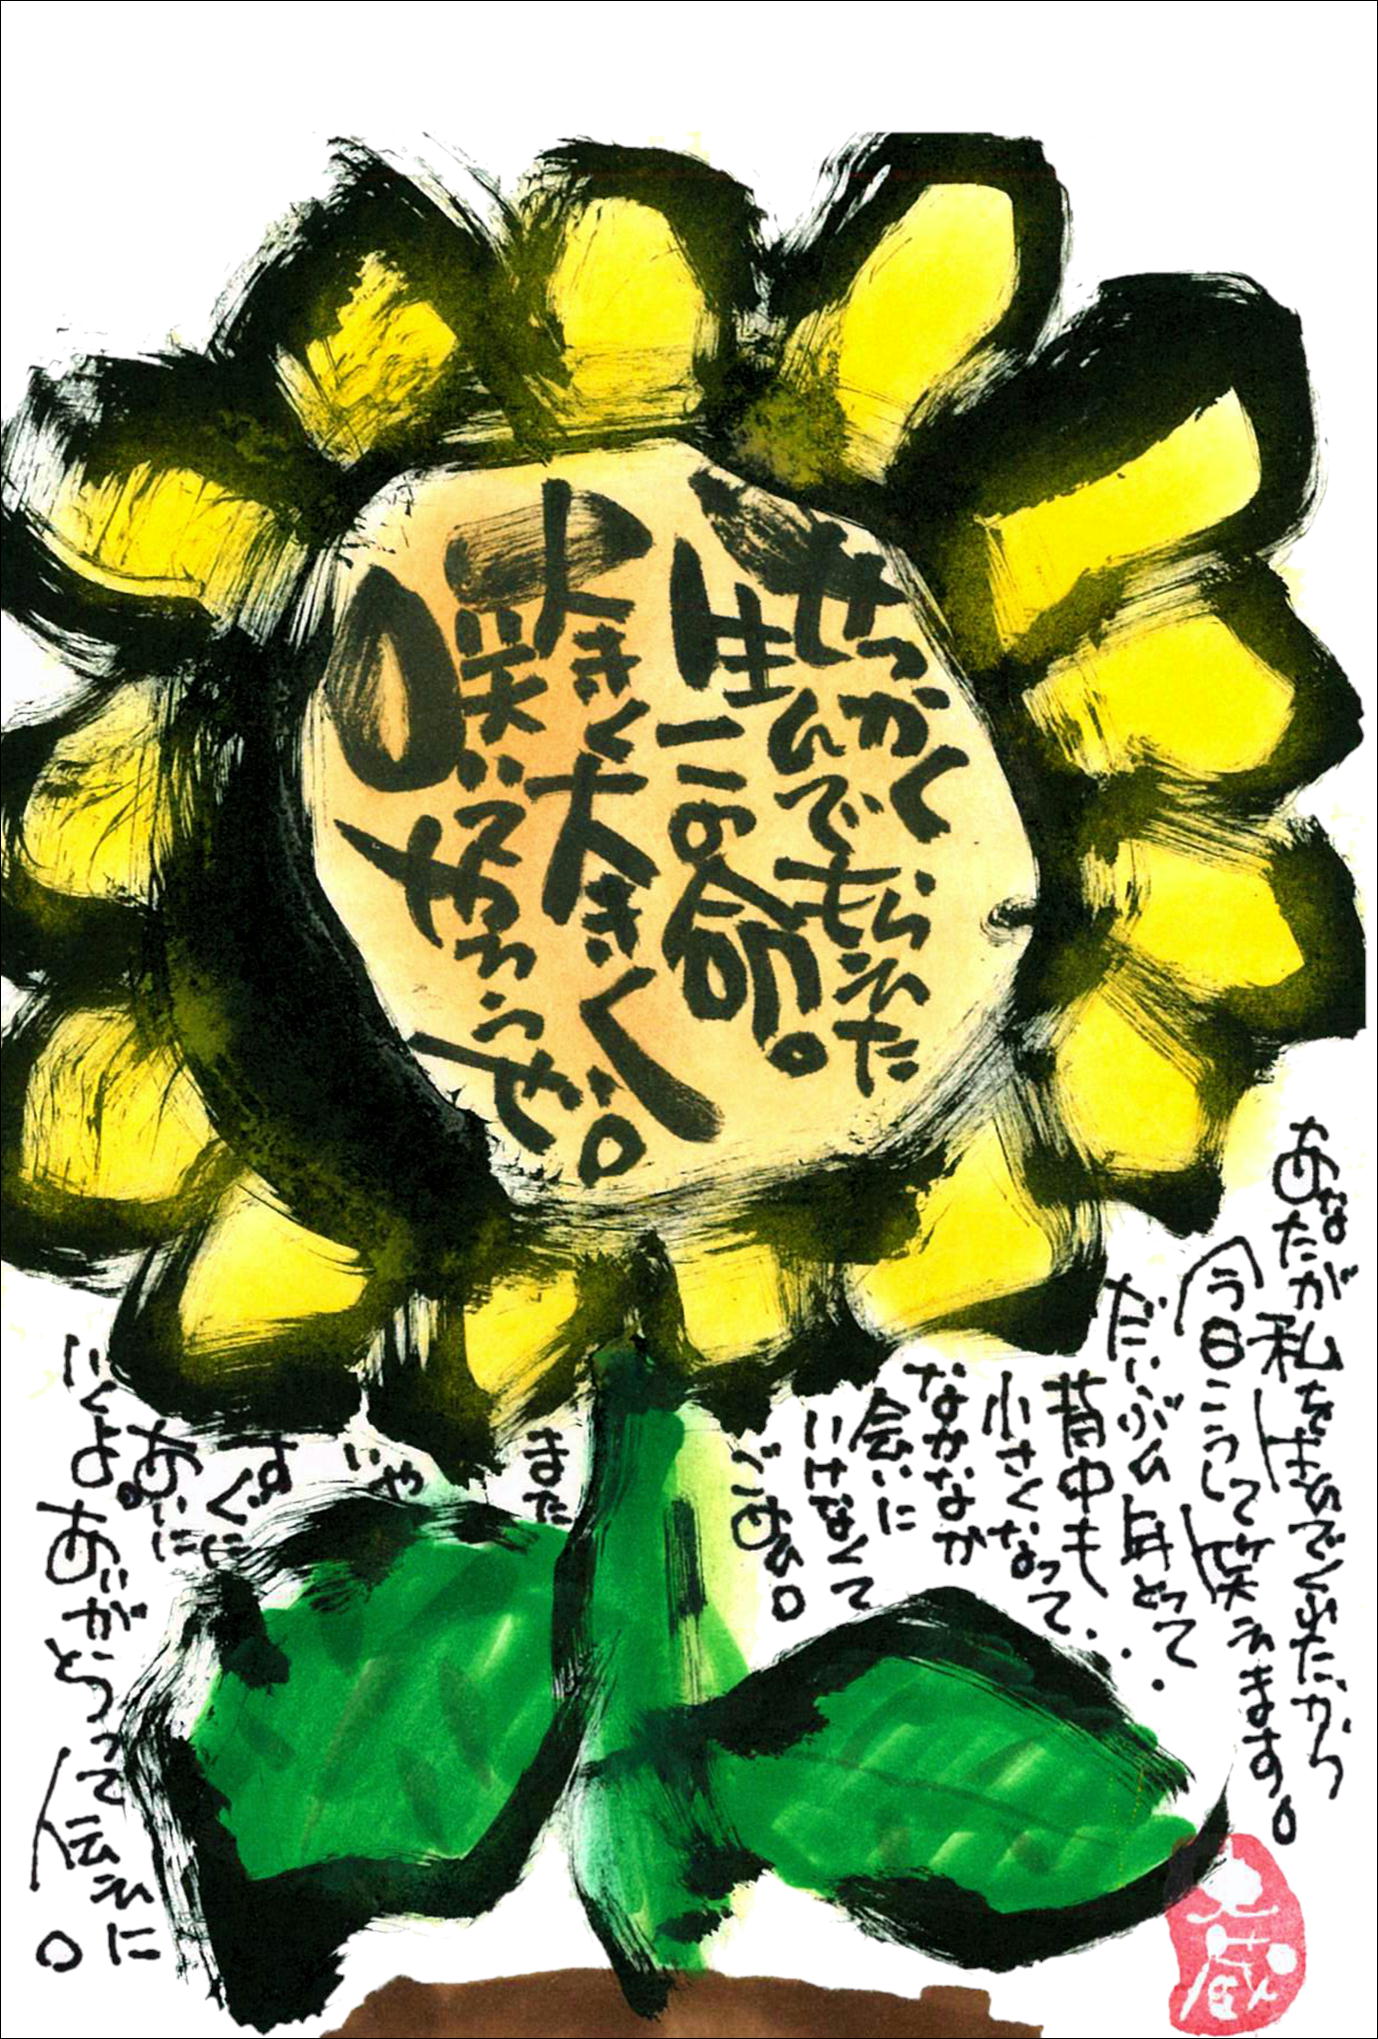 せっかく
生んでもらえた
一この命。
大きく大きく
咲いてやろうぜ。
あなたが私を でくれたから
今日こうして笑えます。
だいぶん年とって
背中も
小さくなって・・・
なかなか
会いに
いけなくて
ごめん。
また
いや
すぐに
あいに
いくよ。
ありがとうって伝えに。